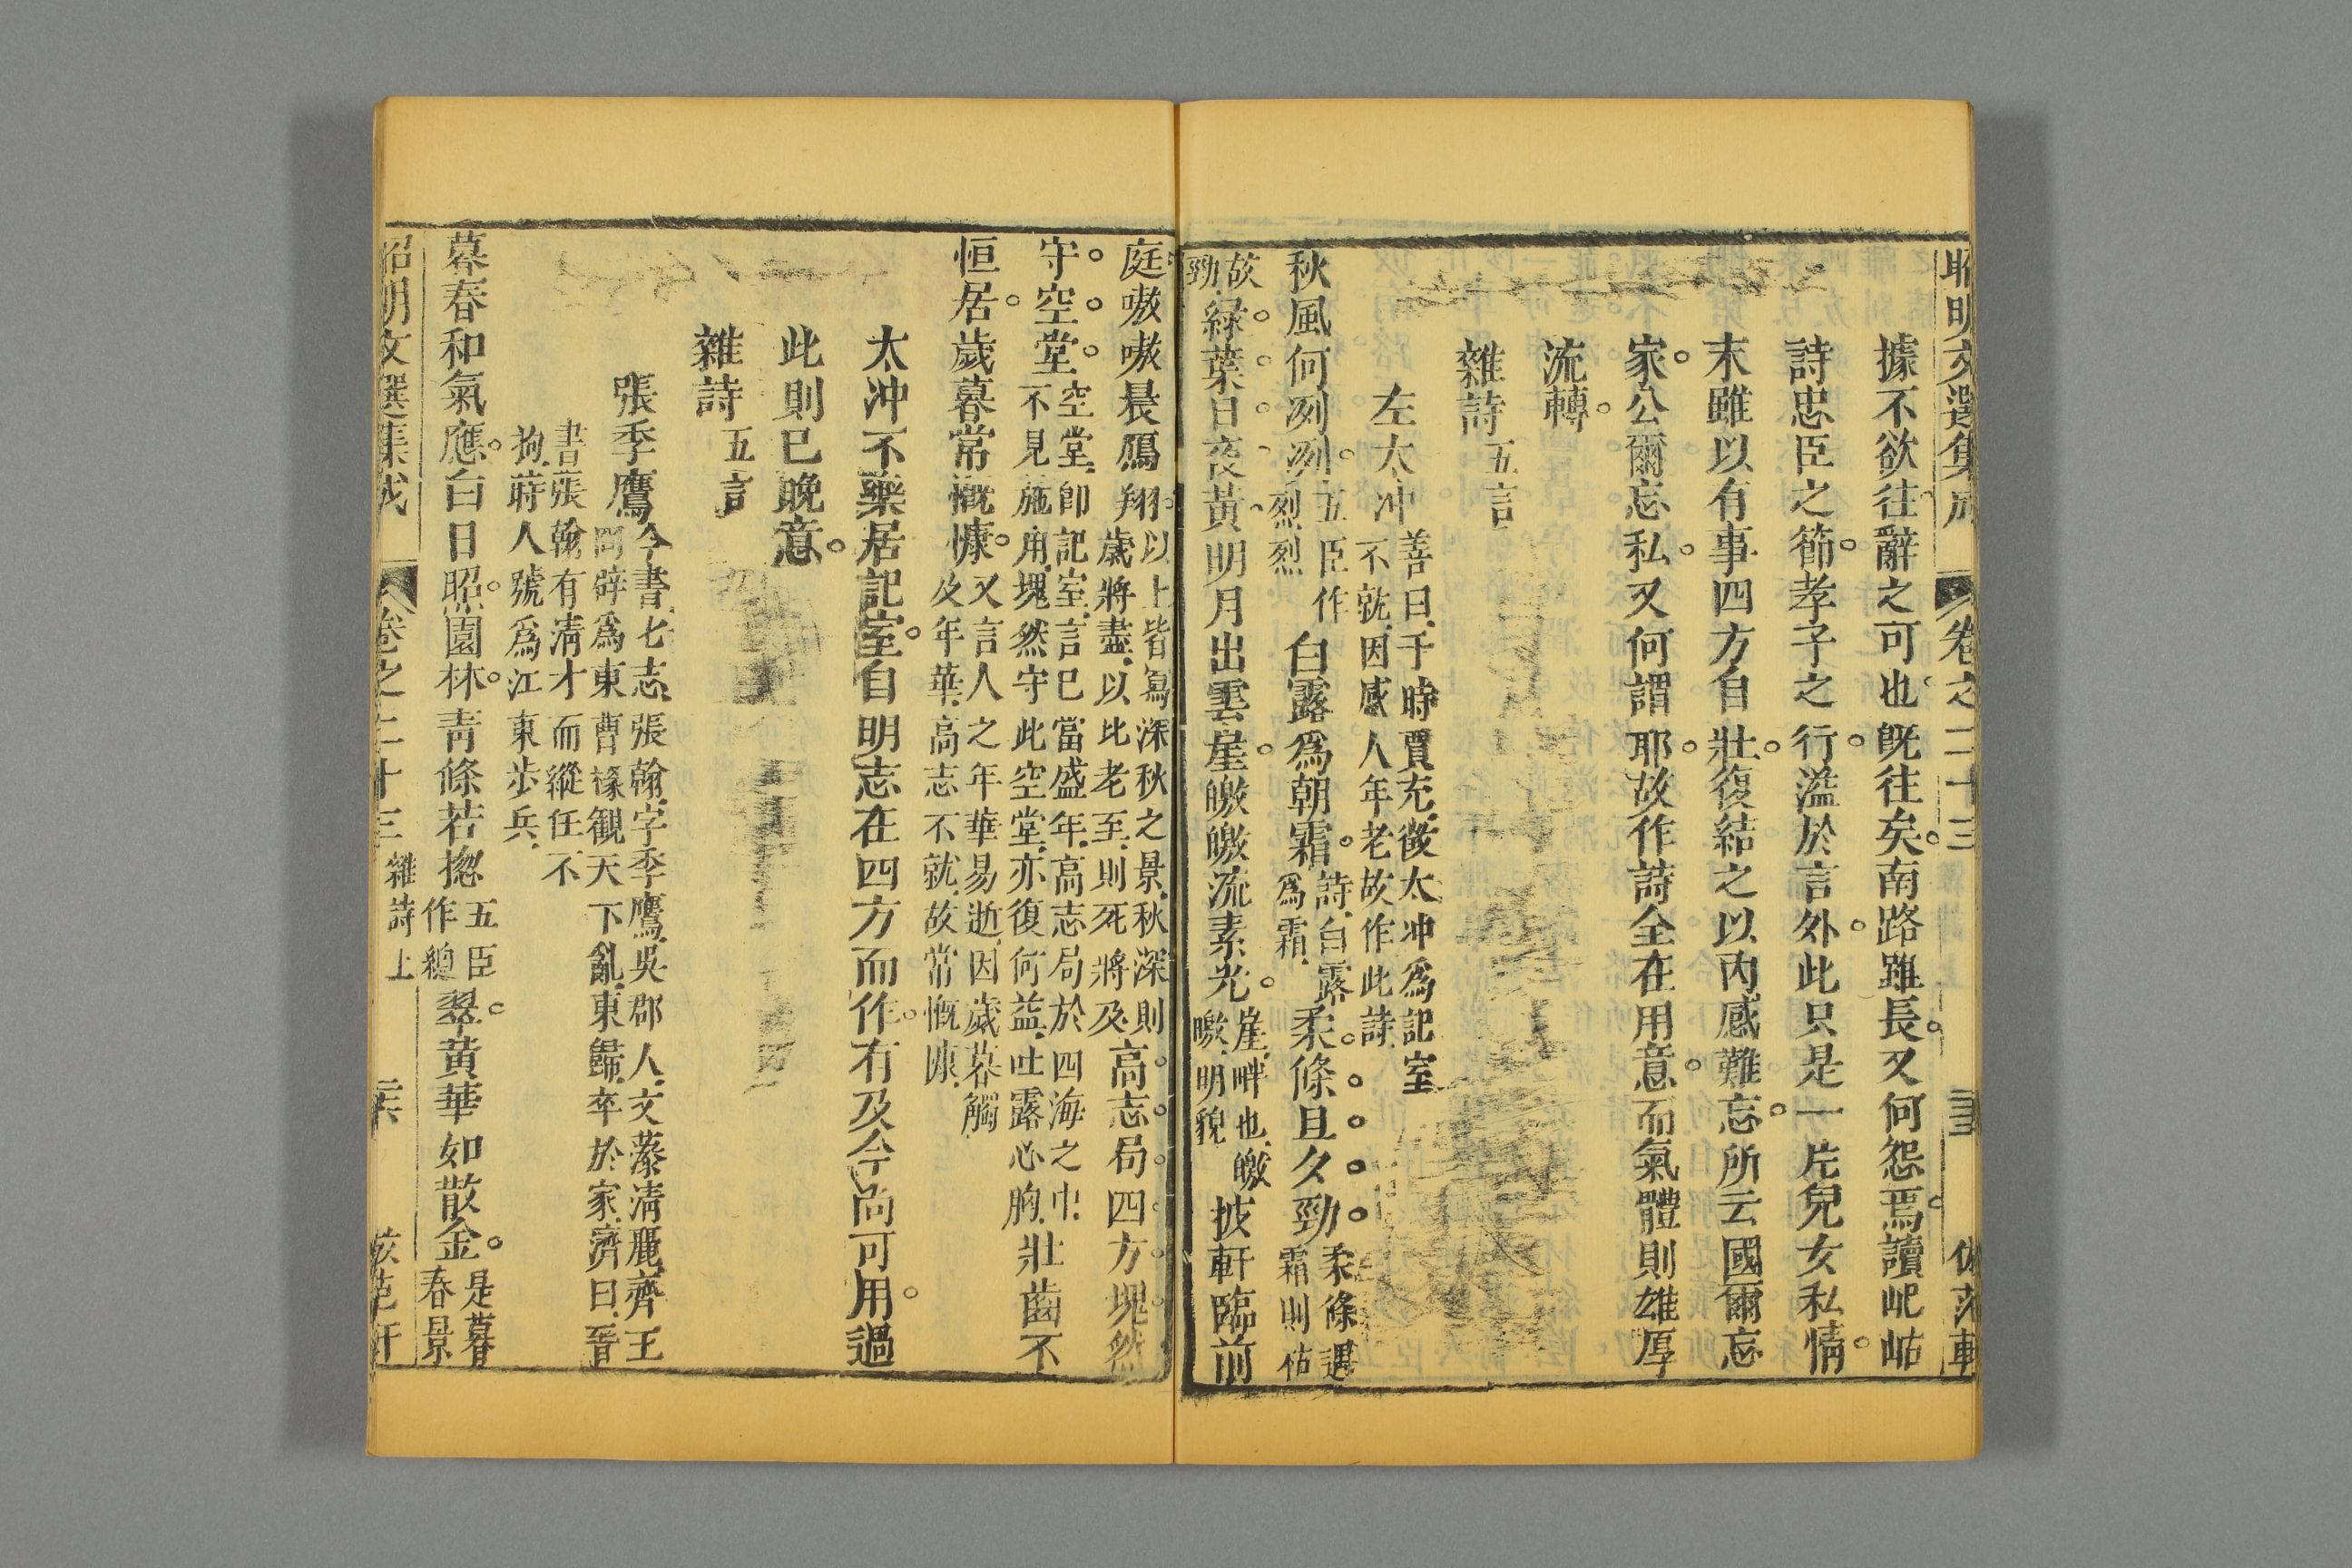 昭明文選集成 卷之二十三
據不欲往辭之可也旣往矣南路雖長又何怨焉讀屺岵
詩忠臣之節孝子之行溢於言外此只是一片兒女私情
末雖以有事四方自壯復結之以內感難忘所云國爾忘
家公爾忘私又何謂耶故作詩全在用意而氣體則雄厚
流轉
雜詩五言
左太冲善曰于時賈充徵太冲爲記室不就因感人年老故作此詩
秋風何冽冽五臣作烈烈白露爲朝霜詩白露爲霜柔條旦夕勁柔條遇霜則枯
故勁綠葉日夜黃明月出雲崖皦皦流素光崖畔也皦皦明貌披軒臨前
庭嗷嗷晨鴈翔以上皆寫深秋之景秋深則歲將盡以比老至則死將及高志局四方塊然
守空堂空堂卽記室言已當盛年高志局於四海之中不見施用塊然守此空堂亦復何益吐露心胸壯齒不
恒居歲暮常慨慷又言人之年華易逝因歲暮觸及年華高志不就故常慨慷
太冲不樂居記室自明志在四方而作有及今尚可用過
此則已晚意
雜詩五言
張季鷹今書七志張翰字季鷹吳郡人文藻淸麗齊王冏辟爲東曹掾觀天下亂東歸卒於家濟曰晉
書張翰有淸才而縱任不拘蒔人號爲江東步兵
暮春和氣應白日昭園林靑條若揔五臣作總翠黃華如散金是暮春景
昭明文選集成 卷之二十三 雜詩上